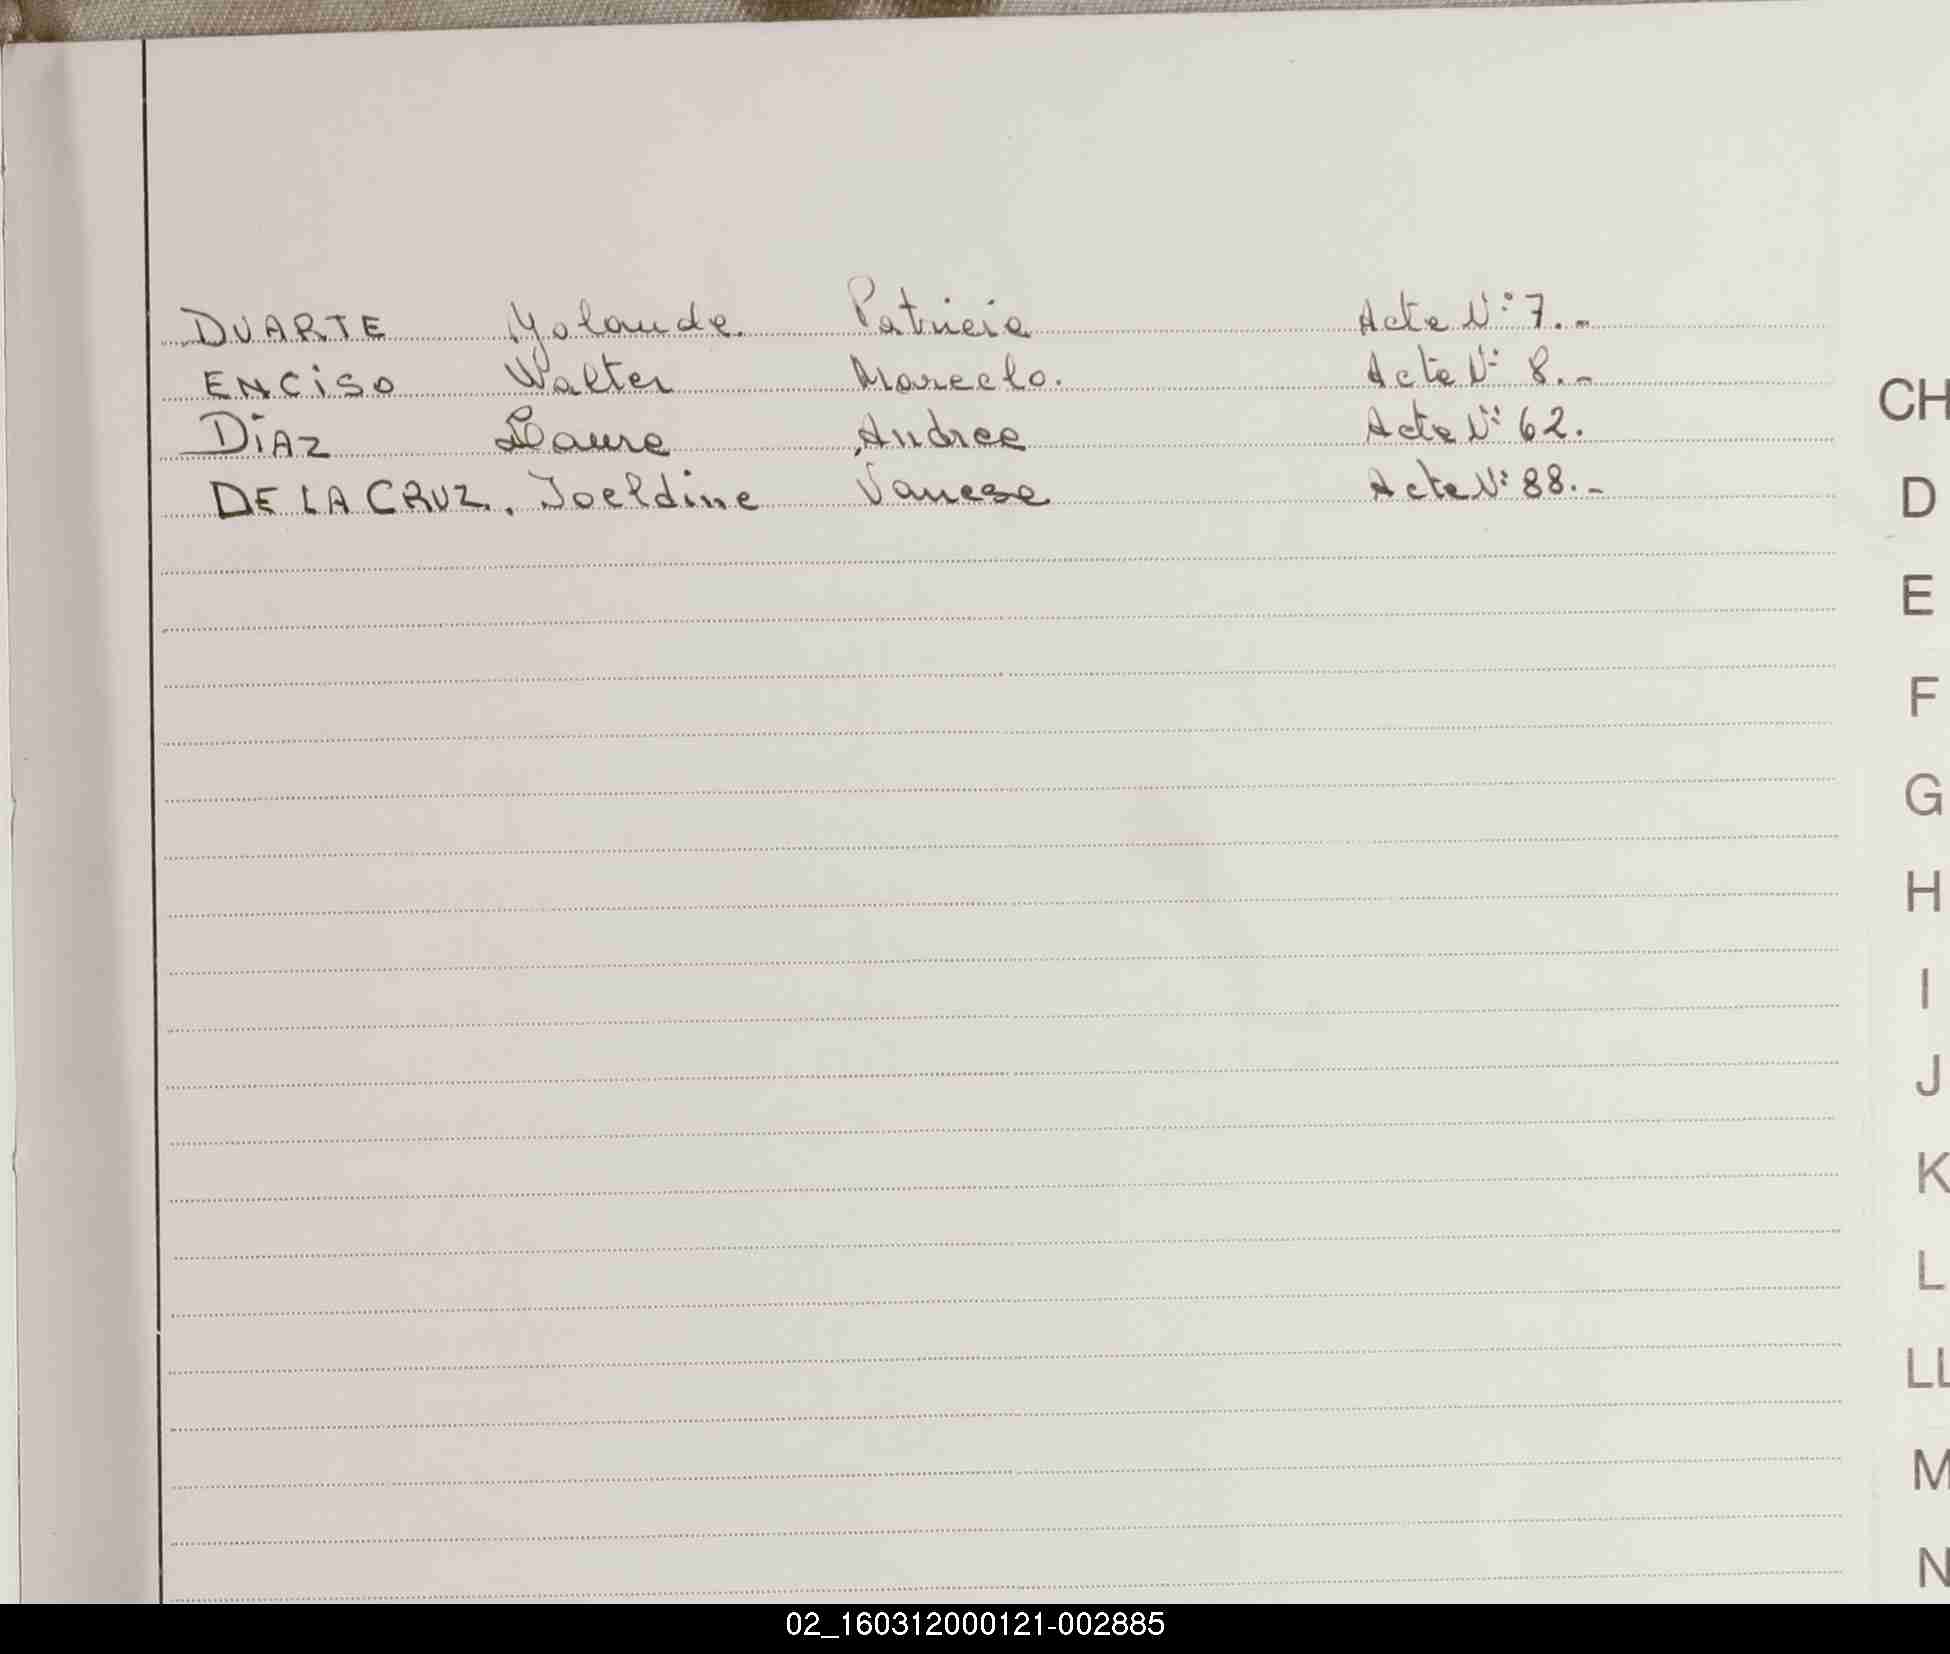 DUARTE Yolanda Patricia Acta Nº 7.-
ENCISO Walter Marcelo. Acta Nº 8.-
DiAZ Laura Andrea Acta Nº 62.
DE LA CRUZ. Joeldine Vanesa Acta Nº 88.-
CH
D
E
F
G
H
I
J
K
L
LL
M
N
02_160312000121-002885